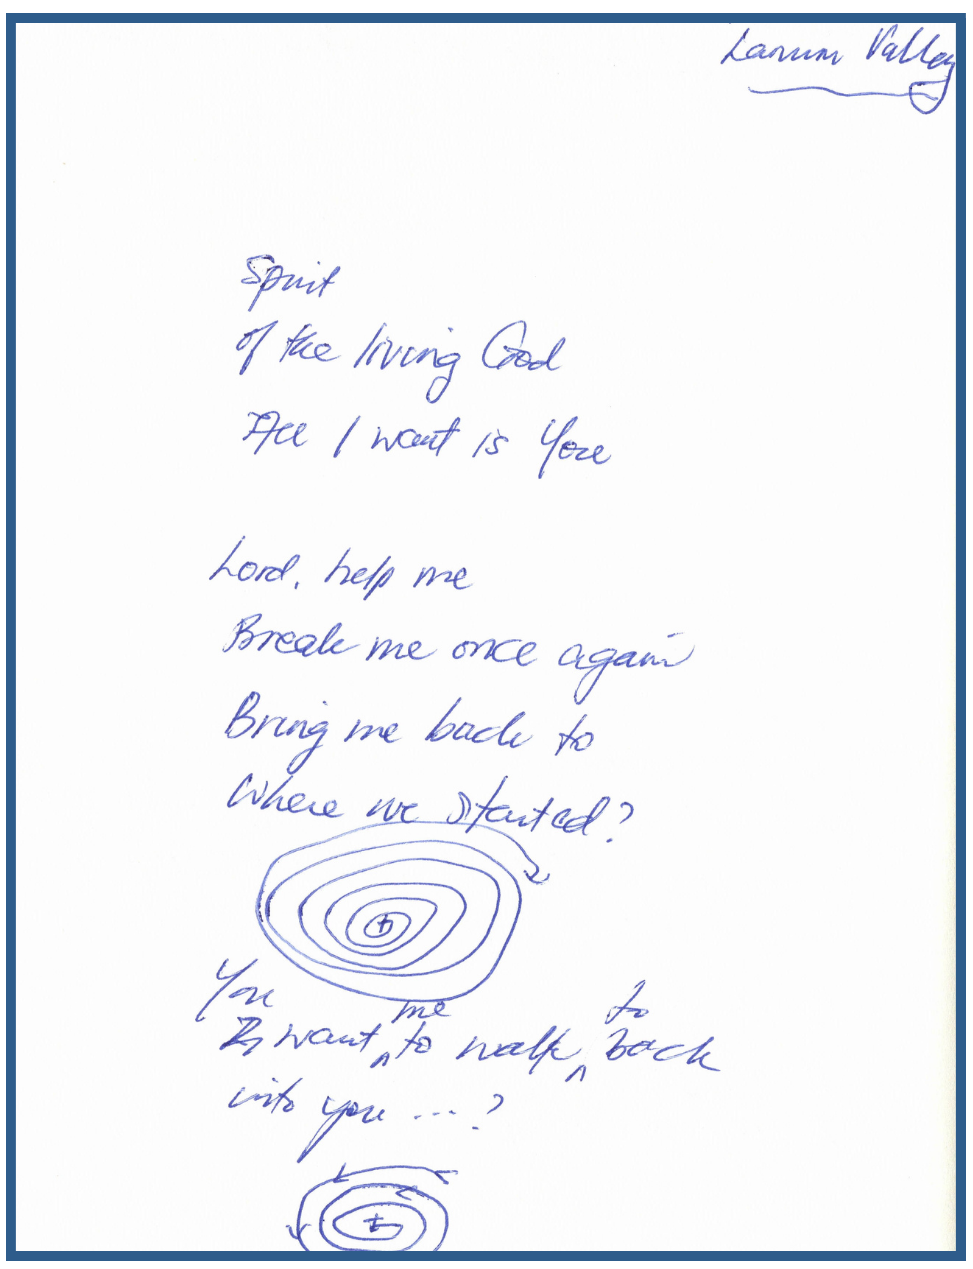 Lanum Valley
Spirit
of the living God
All I want is You
Lord, help me
Break me once again
Bring me back to
Where we started?
You me to
I want ^ to walk ^ back
into you ...?